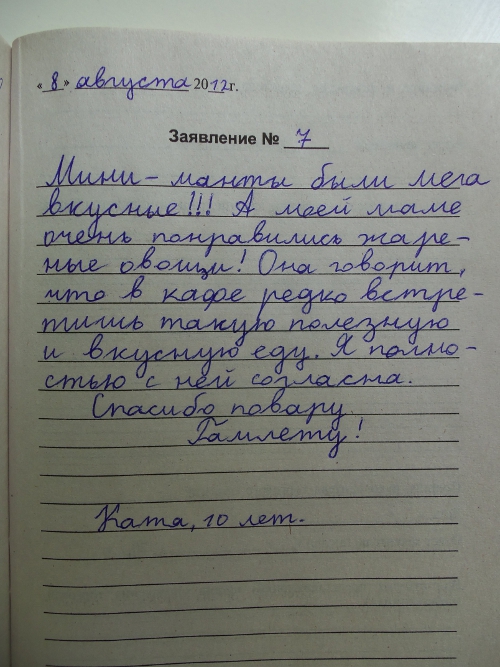 « 8 » августа 2012 г.
Заявление № 7
Мини-манты были мега
вкусные!!! А моей маме
очень понравились жаре-
ные овощи! Она говорит,
что в кафе редко встре-
тишь такую полезную
и вкусную еду. Я полно-
стью с ней согласна.
Спасибо повару
Гамлету!
Ката, 10 лет.